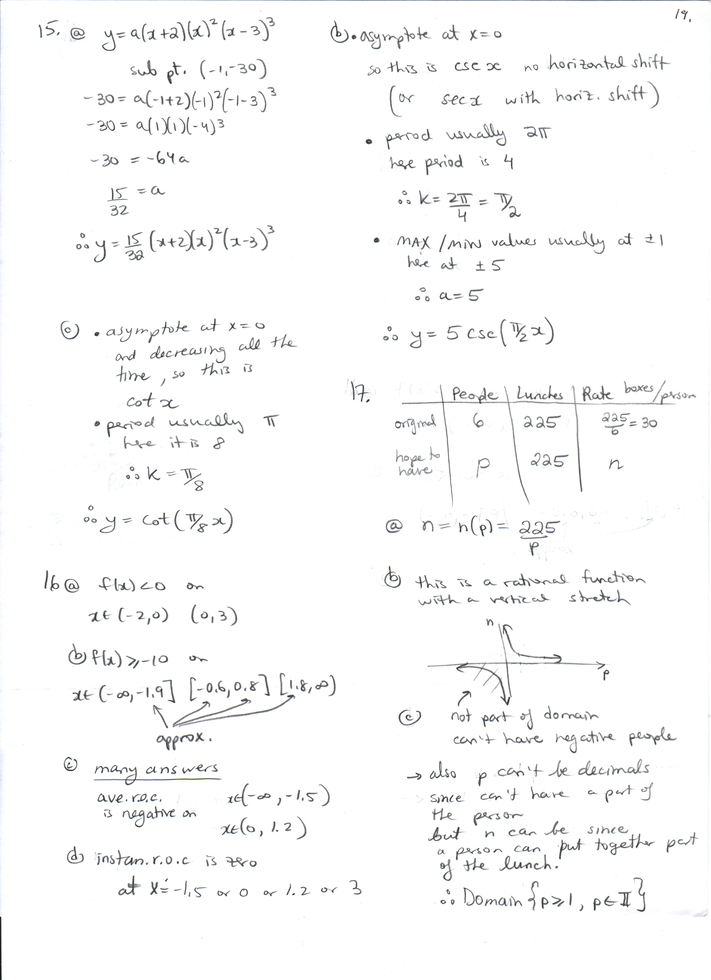 19.
15. ⓐ y = a(x+2)(x)²(x-3)³
sub pt. (-1,-30)
-30 = a(-1+2)(-1)²(-1-3)³
-30 = a(1)(1)(-4)³
-30 = -64a
15/32 = a
∴ y = 15/32 (x+2)(x)²(x-3)³
ⓑ • asymptote at x=0
so this is csc x no horizontal shift
(or sec x with horiz. shift)
• period usually 2π
here period is 4
∴ k = 2π/4 = π/2
• MAX/MIN values usually at ±1
here at ±5
∴ a=5
∴ y = 5 csc(π/2 x)
ⓒ • asymptote at x=0
and decreasing all the
time, so this is
cot x
• period usually π
here it is 8
∴ k = π/8
∴ y = cot(π/8 x)
16 ⓐ f(x)<0 on
x∈(-2,0) (0,3)
ⓑ f(x) ≥ -10 on
x∈(-∞,-1.9] [-0.6,0.8] [1.8,∞)
approx.
ⓒ many answers
ave.r.o.c. x∈(-∞,-1.5)
is negative on x∈(0,1.2)
ⓓ instan.r.o.c is zero
at x≐-1.5 or 0 or 1.2 or 3
17. People Lunches Rate boxes/person
original 6 225 225/6 = 30
hope to have p 225 n
ⓐ n = n(p) = 225/p
ⓑ this is a rational function
with a vertical stretch
n
p
ⓒ not part of domain
can't have negative people
→ also p can't be decimals
since can't have a part of
the person
but n can be since
a person can put together part
of the lunch.
∴ Domain {p≥1, p∈I}